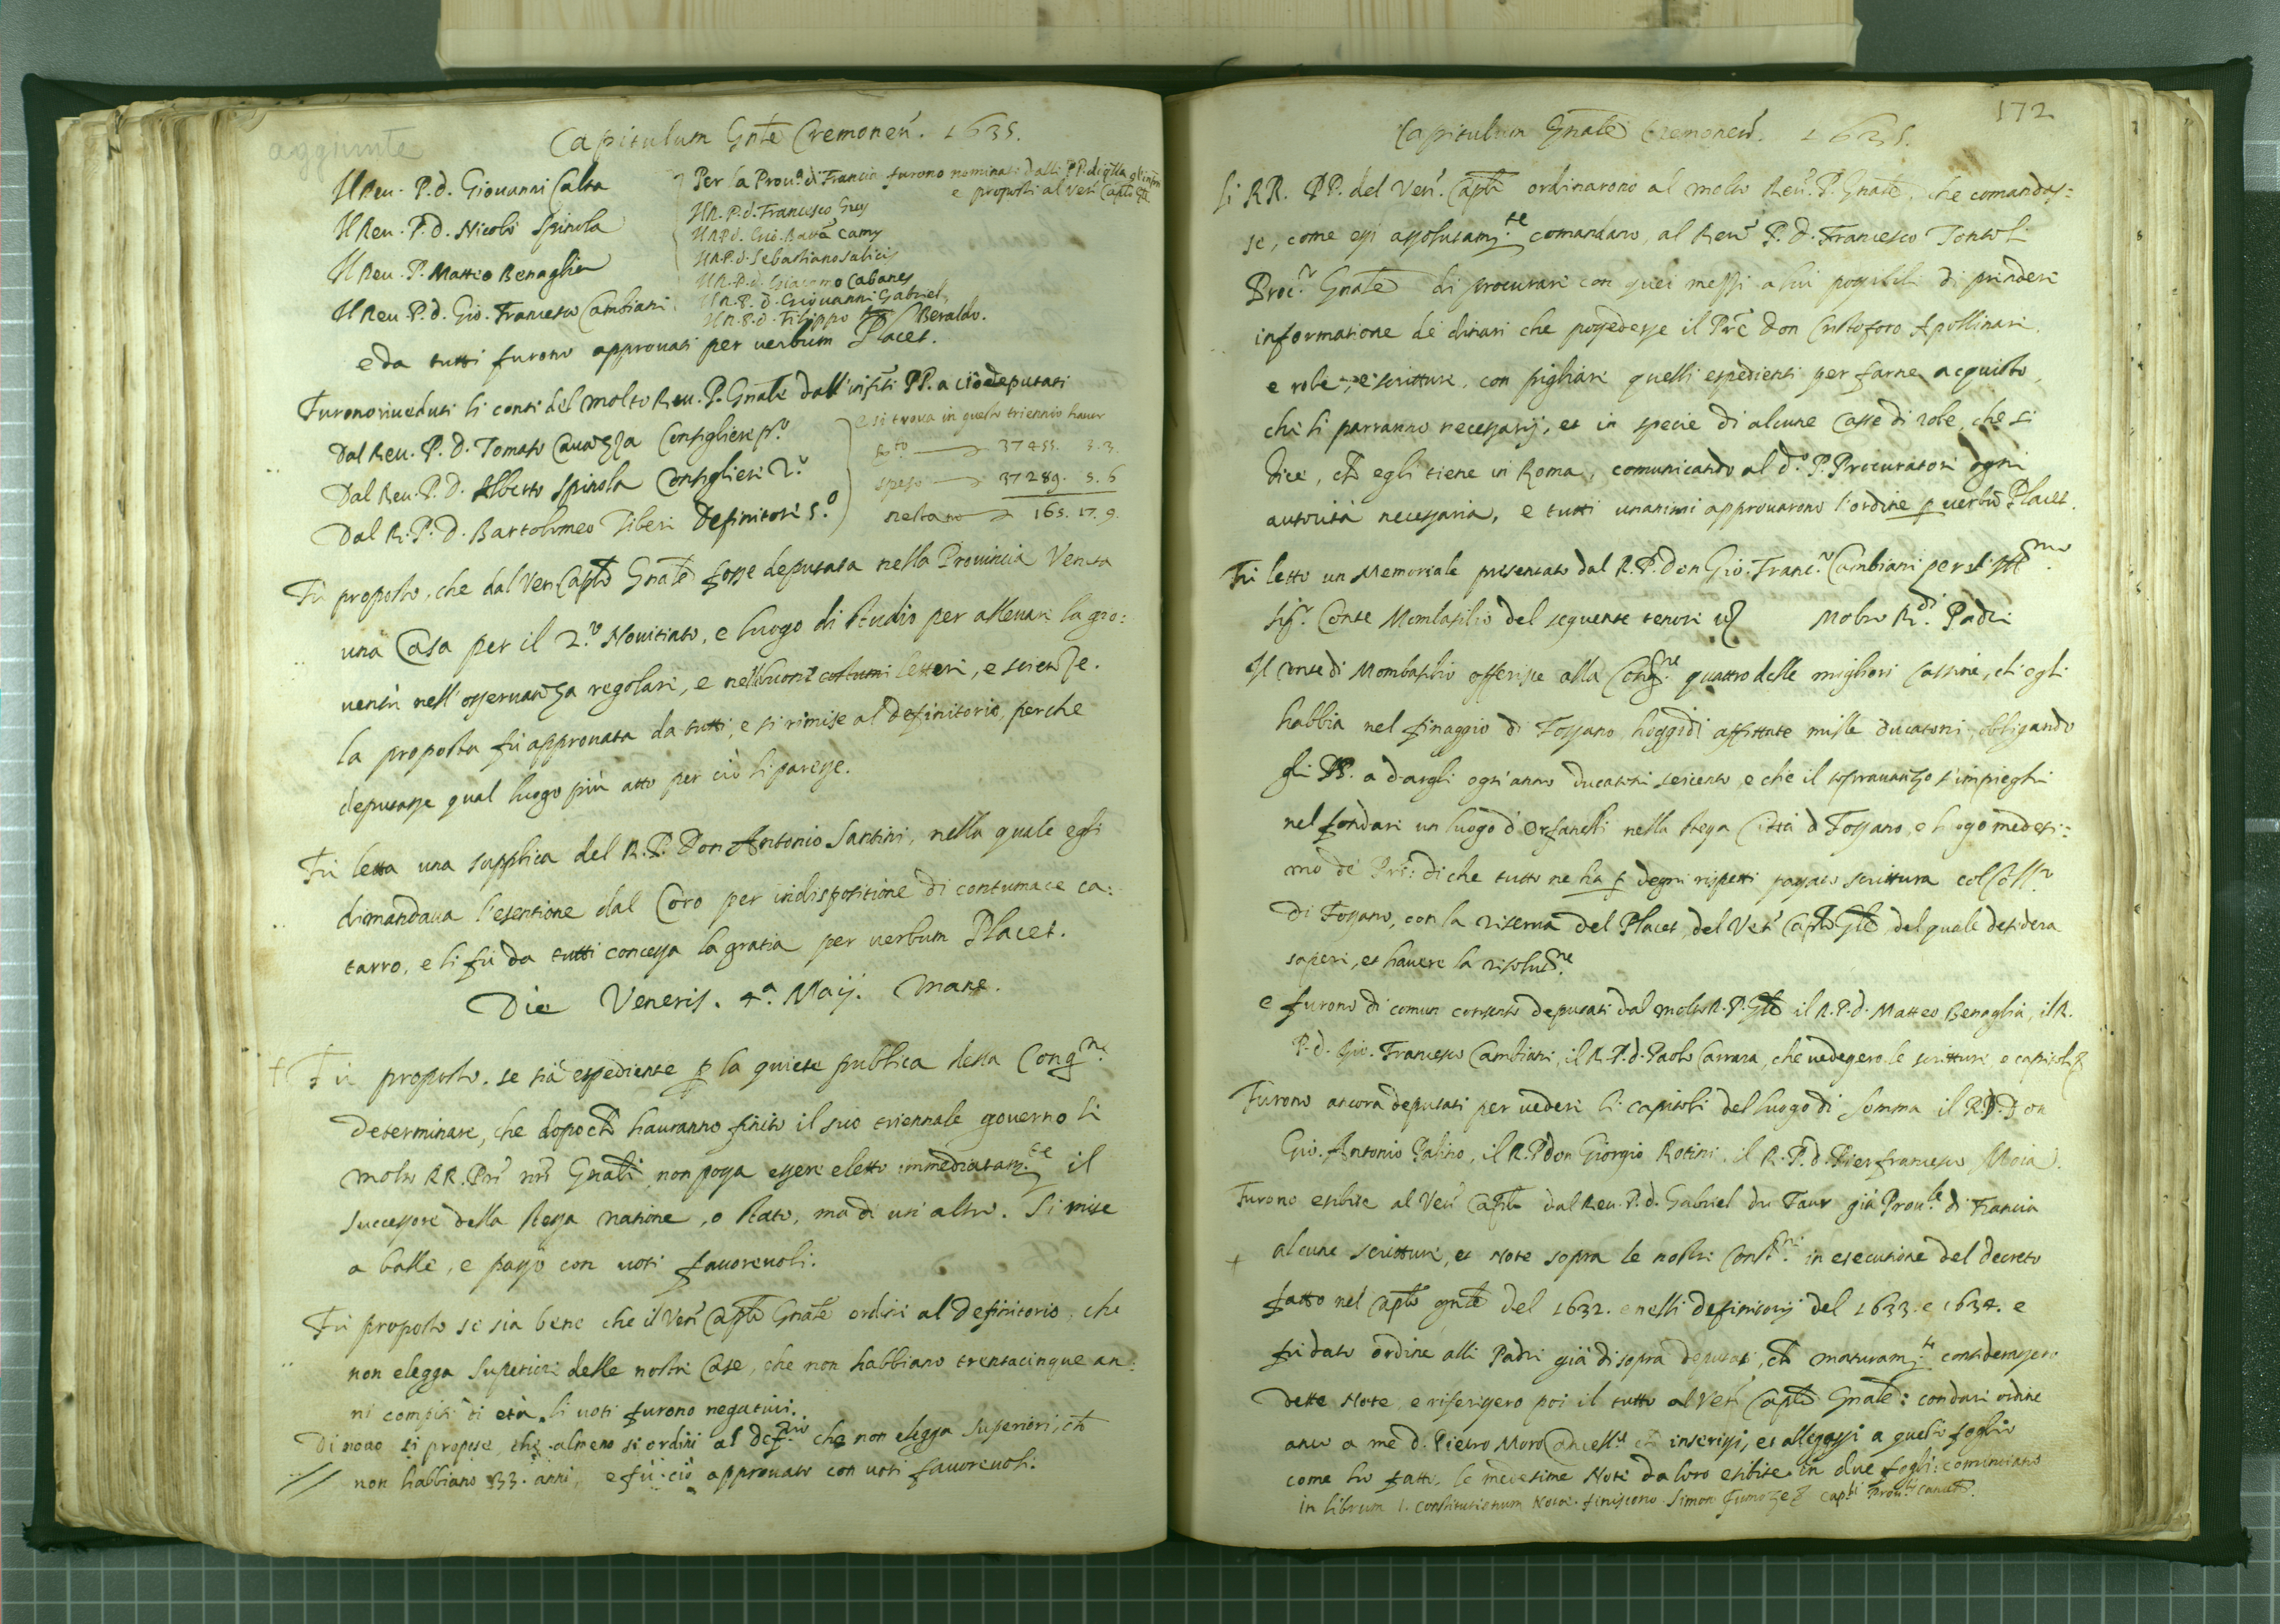 aggiunte
Capitulum Gn̄le Cremonen̄. 1635.
Il Reu. P. d. Giouanni Calta
Il Reu. P. d. Nicolò Spinola
Il Reu. P. Matteo Benaglia
Il Reu. P. d. Gio. Francesco Cambiani
Per la Prou.a di Francia furono nominati dalli PP. di q̄lla gl'inf̄ri
e proposti al Ven̄ Cap̄lo Gn̄le
Il R. P. d. Francesco Grey
Il R. P. d. Gio. Batt̄a Camy
Il R. P. d. Sebastiano Salicis
Il R. P. d. Giacomo Cabanes
Il R. P. d. Giouanni Gabriel
Il R. P. d. Filippo Beraldo.
e da tutti furono approuati per uerbum Placet.
Furono riueduti li conti del molto Reu. P. Gn̄ale dall'infr̄i PP. a ciò deputati
Dal Reu. P. D. Tomaso Cauazza Consigliere p.o
Dal Reu. P. D. Alberto Spinola Consigliere 2.o
Dal R. P. D. Bartolomeo Tiberi Definitore 5.o
e si trova in questo triennio hauer
37455. 3. 3.
speso 37289. 5. 6
restano 165. 17. 9.
Fù proposto, che dal Ven Cap̄lo Gn̄ale fosse deputata nella Prouincia Veneta
una Casa per il 2.o Nouitiato, e luogo di studio per alleuare la gio:
uentù nell'osseruanza regolare, e nelle buone costumi lettere, e scienze.
la proposta fù approuata da tutti, e si rimise al Definitorio, perche
deputasse qual luogo più atto per ciò li paresse.
Fù letta una supplica del R. P. Don Antonio Santini, nella quale egli
dimandaua l'esentione dal Coro per indispositione di contumace ca:
tarro, e li fù da tutti concessa la gratia per uerbum Placet.
Die Veneris. 4.a Maij. Mane.
Fù proposto. se sia espediente p̱ la quiete publica della Cong.ne
determinare, che dopo ch̄ hauranno finito il suo triennale gouerno li
molto RR. Pr̄i nr̄i Gn̄ali non possa essere eletto immediatam.te il
successore della stessa natione, o stato, ma di un altro. Si mise
a balle, e passò con uoti fauoreuoli.
Fù proposto se sia bene che il Ven̄ Cap̄lo Gn̄ale ordini al Definitorio, che
non elegga Superiori delle nostre Case, che non habbiano trentacinque an:
ni compiti di età. li uoti furono negatiui.
Di nouo si propose, che almeno si ordini al Def.rio che non elegga superiori, ch̄
non habbiano 33. anni, e fù ciò approuato con uoti fauoreuoli.
172
Capitulum Gn̄ale Cremonen̄. 1635.
Li RR. PP. del Ven̄. Cap̄lo ordinarono al molto Reu̅. P. Gn̄ale, che comandas:
se, come essi assolutam.te comandano, al Reu̅ P. D. Francesco Tontoli
Proc.r Gn̄ale di procurare con quei mezzi a lui possibili di prendere
informatione de dinari che possedesse il Pr̄e Don Cristoforo Apollinari
e robe, e scritture, con pigliare quelli espedienti per farne acquisto,
che li parranno necessarij, et in specie di alcune Casse di robe, che si
dice, ch̄ egli tiene in Roma, comunicando al d.o P. Procuratore ogni
autorità necessaria, e tutti unanimi approuarono l'ordine p̱ uerbū Placet.
Fù letto un Memoriale presentato dal R. P. Don Gio. Franc.o Cambiani per il Ill.mo
Sig.r Conte Mombasilio del seguente tenore uz Molto R.di Padri
Il Conte di Mombasilio offerisce alla Cong.ne quattro delle migliori Cassine, ch'egli
habbia nel finaggio di Fossano, hoggidì affittate mille ducatoni, obligando
gli PP. a dargli ogn'anno ducatoni seicento e che il soprauanzo s'impieghi
nel fondare un luogo d'Orfanelli nella stessa Città d Fossano, e luogo medesi:
mo de Pr̄i: di che tutto ne ha p̱ degni rispetti passato scrittura col Coll.o
di Fossano, con la riserua del Placet, del Ven̄ Cap̄lo Gl̄e, del quale desidera
sapere, et hauere la risolut.ne
e furono di comun consenso deputati dal molto R. P. Gl̄e il R. P. d. Matteo Benaglia, il R.
P. d. Gio. Francesco Cambiani, il R. P. d. Paolo Carrara, che uedessero le scritture, e capitoli
Furono ancora deputati per uedere li capitoli del luogo di Somma il R. P. Don
Gio. Antonio Palino, il R. P. don Giorgio Rotini, il R. P. d. Pierfrancesco Moia.
Furono esibite al Ven̄ Cap̄lo dal Reu. P. d. Gabriel du Faur già Prou.le di Francia
alcune scritture, et Note sopra le nostre Const.ni in esecutione del decreto
fatto nel Cap̄lo gn̄ale del 1632. e nelli definitorij del 1633. e 1634. e
fù dato ordine alli Padri già di sopra deputati, ch̄ maturam.te considerassero
dette Note e riferissero poi il tutto al Ven̄ Cap̄lo Gn̄ale: con dare ordine
anco a me d. Pietro Moro Cancell.e ch̄ inserissi, et allegassi a questo foglio
come hò fatto, le medesime Note da loro esibite in due fogli: cominciano
in librum 1. Constitutionum Nouæ. finiscono Simon Fumoze Cap.li Prou.lis Cancell.